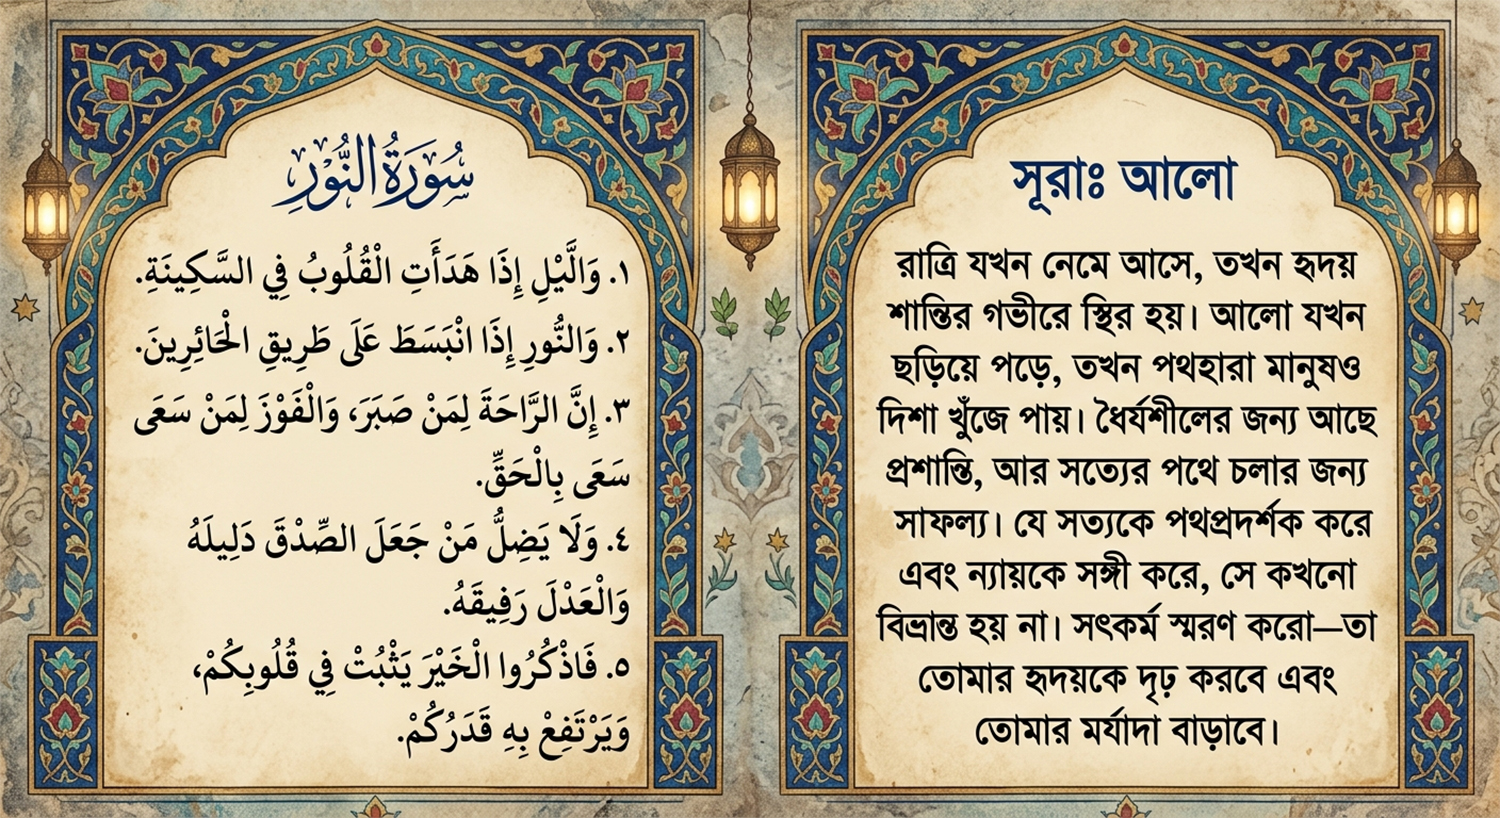 سُورَةُ النُّورِ
١. وَالَّيْلِ إِذَا هَدَأَتِ الْقُلُوبُ فِي السَّكِينَةِ.
٢. وَالنُّورِ إِذَا انْبَسَطَ عَلَى طَرِيقِ الْحَائِرِينَ.
٣. إِنَّ الرَّاحَةَ لِمَنْ صَبَرَ، وَالْفَوْزَ لِمَنْ سَعَى
سَعَى بِالْحَقِّ.
٤. وَلَا يَضِلُّ مَنْ جَعَلَ الصِّدْقَ دَلِيلَهُ
وَالْعَدْلَ رَفِيقَهُ.
٥. فَاذْكُرُوا الْخَيْرَ يَثْبُتْ فِي قُلُوبِكُمْ،
وَيَرْتَفِعْ بِهِ قَدَرُكُمْ.
সূরাঃ আলো
রাত্রি যখন নেমে আসে, তখন হৃদয়
শান্তির গভীরে স্থির হয়। আলো যখন
ছড়িয়ে পড়ে, তখন পথহারা মানুষও
দিশা খুঁজে পায়। ধৈর্যশীলের জন্য আছে
প্রশান্তি, আর সত্যের পথে চলার জন্য
সাফল্য। যে সত্যকে পথপ্রদর্শক করে
এবং ন্যায়কে সঙ্গী করে, সে কখনো
বিভ্রান্ত হয় না। সৎকর্ম স্মরণ করো—তা
তোমার হৃদয়কে দৃঢ় করবে এবং
তোমার মর্যাদা বাড়াবে।